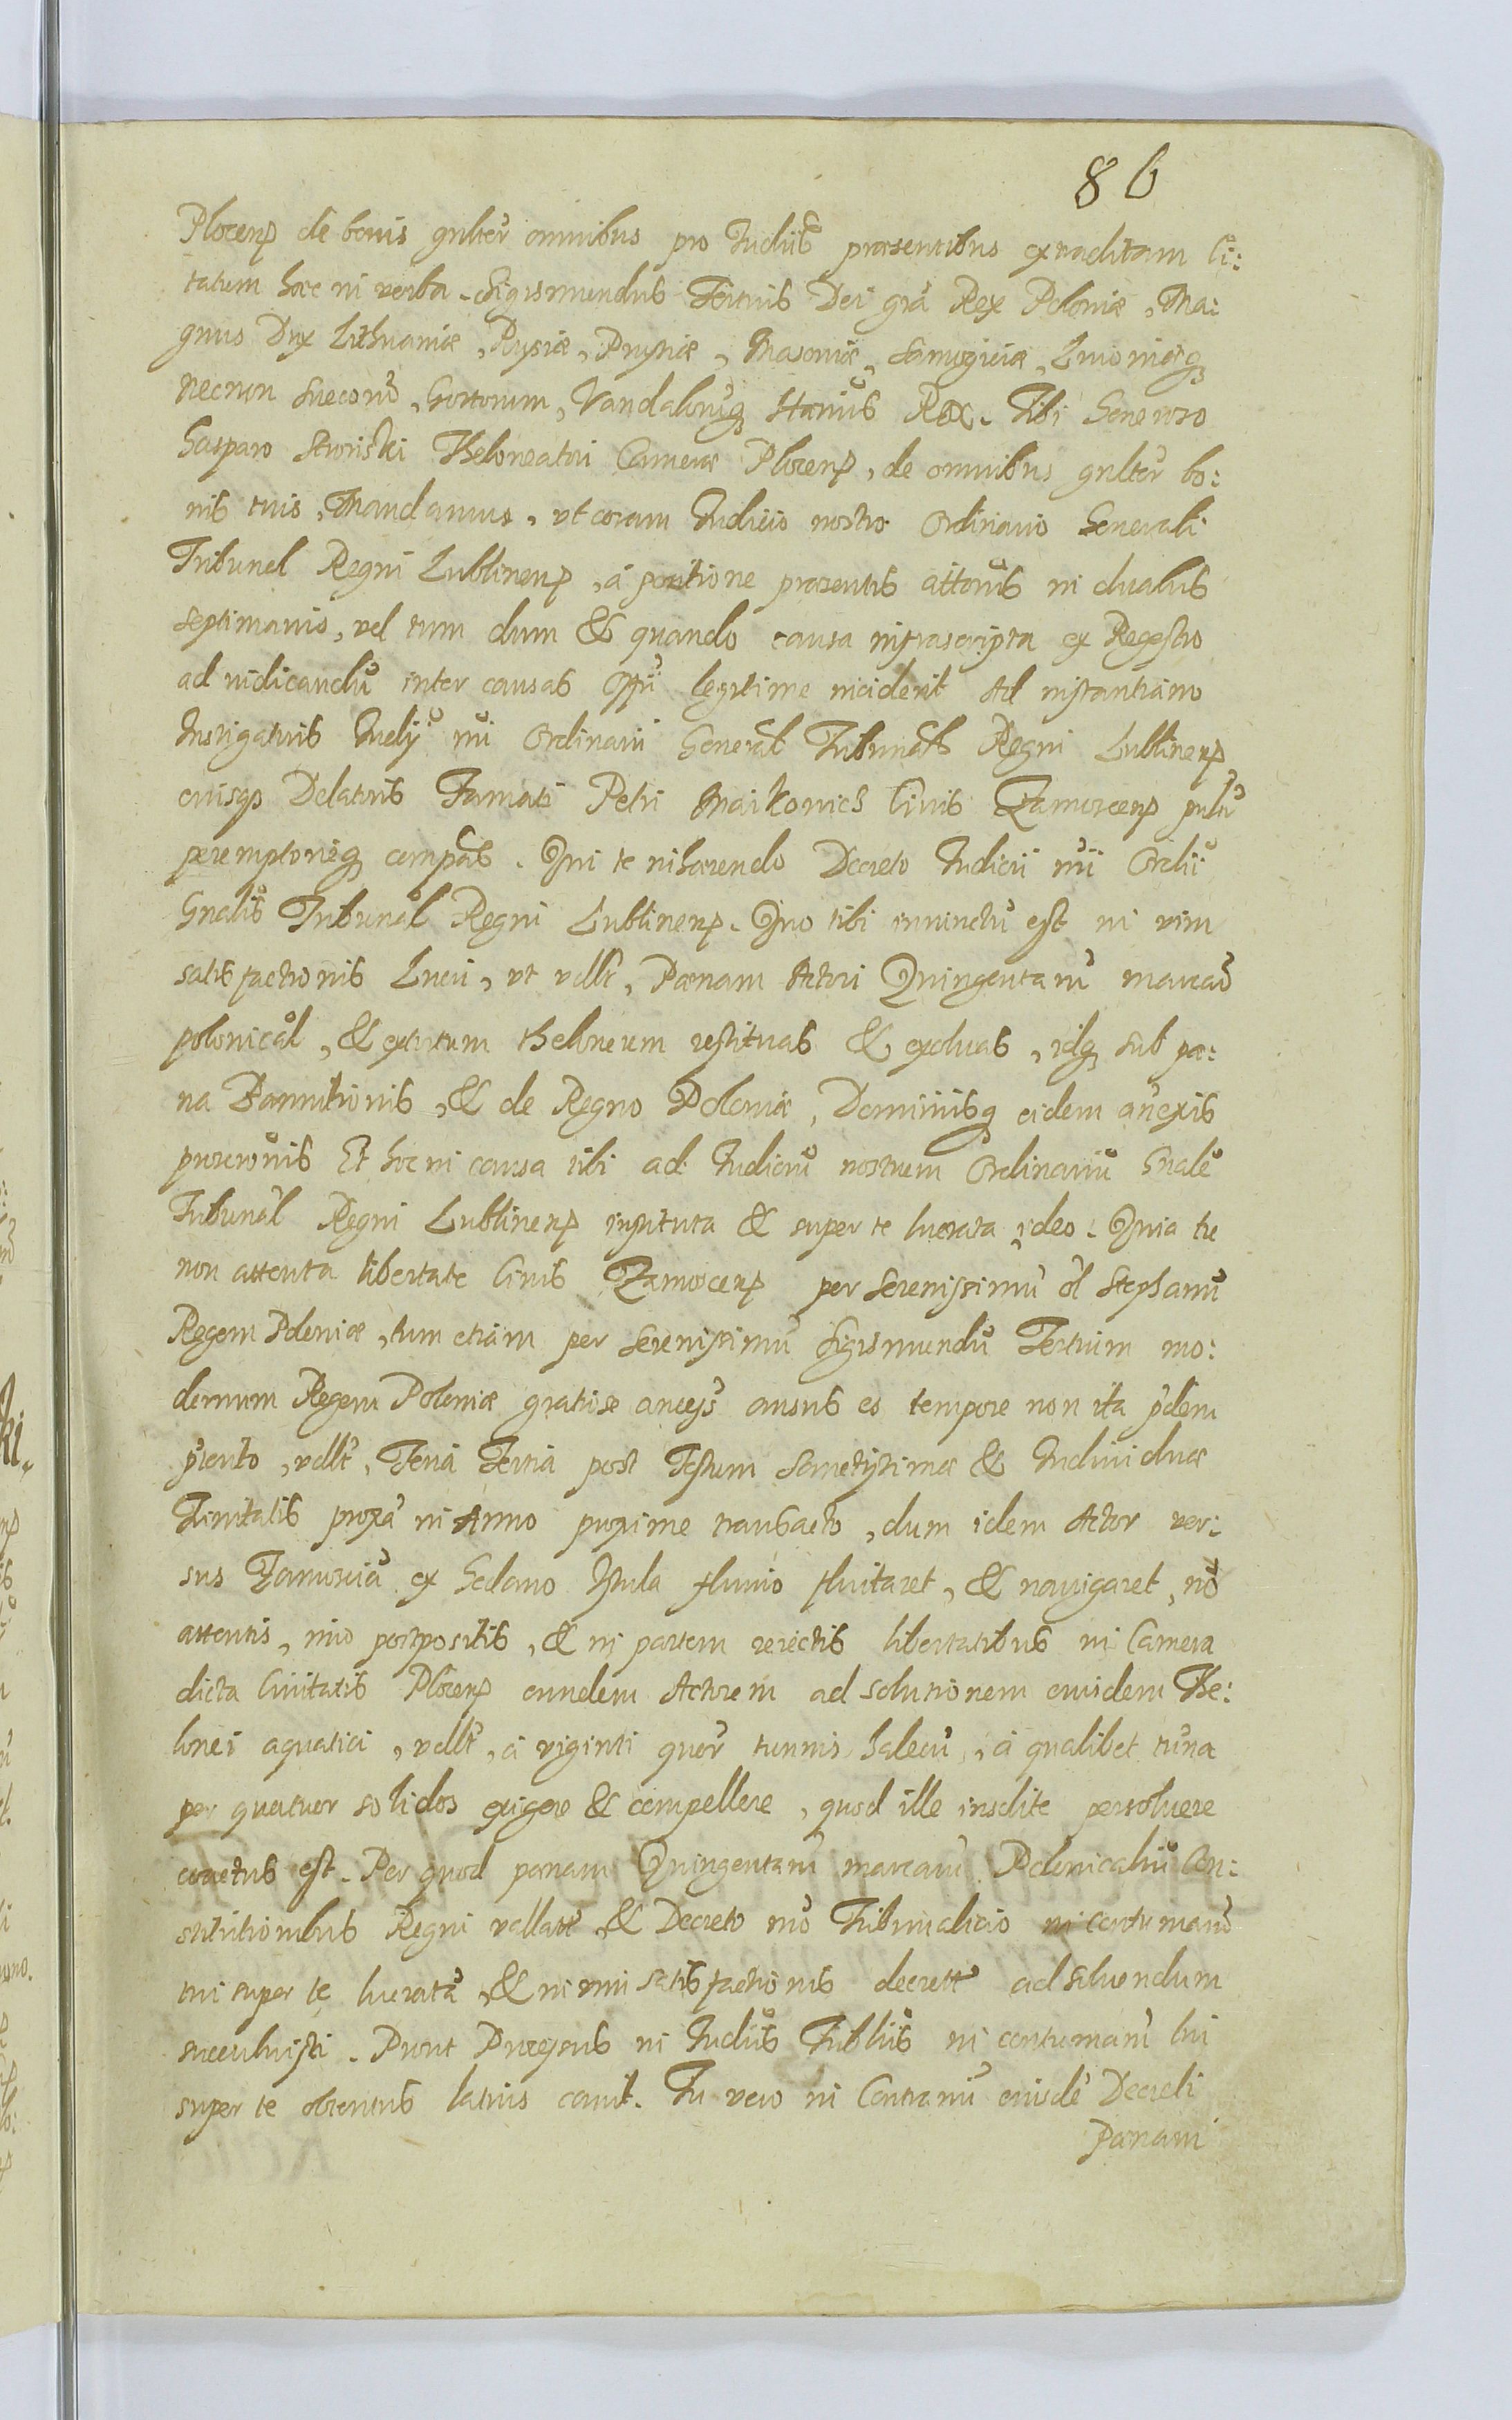 86
Plocens de bonis gnlter omnibus pro Iudiis praesentibus extraditam Ci:
tatum hoce in verba. Sigismundus Tertius Dei grã Rex Poloniæ, Ma:
gnus Dux Lithuaniæ, Russiæ, Prussiæ, Masoviæ, Samogitiæ, Livoniæq
necnon Suecorũ, Gottorum, Vandalorũq Hærius Rex. Tibi Generoso
Gasparo Theloneatori Cameræ Plocens, de omnibus gnlter bo:
nis tuis, Mandamus, vt coram Iudicio nostro Ordinario Generali
Tribunal Regni Lublinens, à positione praesentis ad duabus
septimanis, vel tum dum & quando causa infrascripta ex Regestro
ad iudicandũ inter causas Offii legitime inciderit Ad instantiam
Instigatoris Iudiy nri Ordinarii General Tribunal Regni Lublinens
eiusqs Delatoris Famati Petri Maikowicz Civis Zamoscens
peremptorieq compas. Qui te inhaerendo Decreto Iudicii nri Ordii
Gnalis Tribunal Regni Lublinens. Quo tibi iniunctũ est in vim
satisfactionis Lucri, vt vallt, Pænam Actori Quingentarũ marcarũ
polonical, & extortum theloneum restituas & exolvas, idq sub pæ:
na Bannitionis, & de Regno Poloniæ, Dominiisq eidem añexis
proscronis Et hoc in causa tibi ad Iudiciũ nostrum Ordinariũ Gnale
Tribunal Regni Lublinens instituta & super te lucrata ideo. Quia tu
non attenta libertate Civis Zamoscens per Serenissimũ ol Stephanũ
Regem Poloniæ, tum etiam per Serenissimũ Sigismundũ Tertium mo:
dernum Regem Poloniæ gratiose ausus es tempore non ita pdem
pterito, vallt, Feria Tertia post Festum Sanctissimæ & Individuæ
Trinitatis proxa in Anno proxime transacto, dum idem Actor ver:
sus Zamosciã ex Gedano Istula fluvio fluitaret, & navigaret, nõ
attentis, imo postpositis, & in partem reiectis libertatibus in Camera
dicta Civitatis Plocens eundem Actorem ad solutionem eiusdem The:
lonei aquatici, vallt, à viginti quor tunnis halecũ, à qualibet tũna
per quatuor solidos exigere & compellere, quod ille insolite persolvere
coactus est. Per quod pænam Quingentarũ marcarũ Polonicaliũ Con:
stitutionibus Regni vallatã & Decreto nro Tribunalicio in contumaciã
tui super te lucratã & in vim satisfactionis decretã ad solvendum
succubuisti. Prout Processus in Iudiis Tribliis in contumaciã tui
super te obtentus latius canit. Tu vero in Contrariũ eiusdẽ Decreti
Pænam